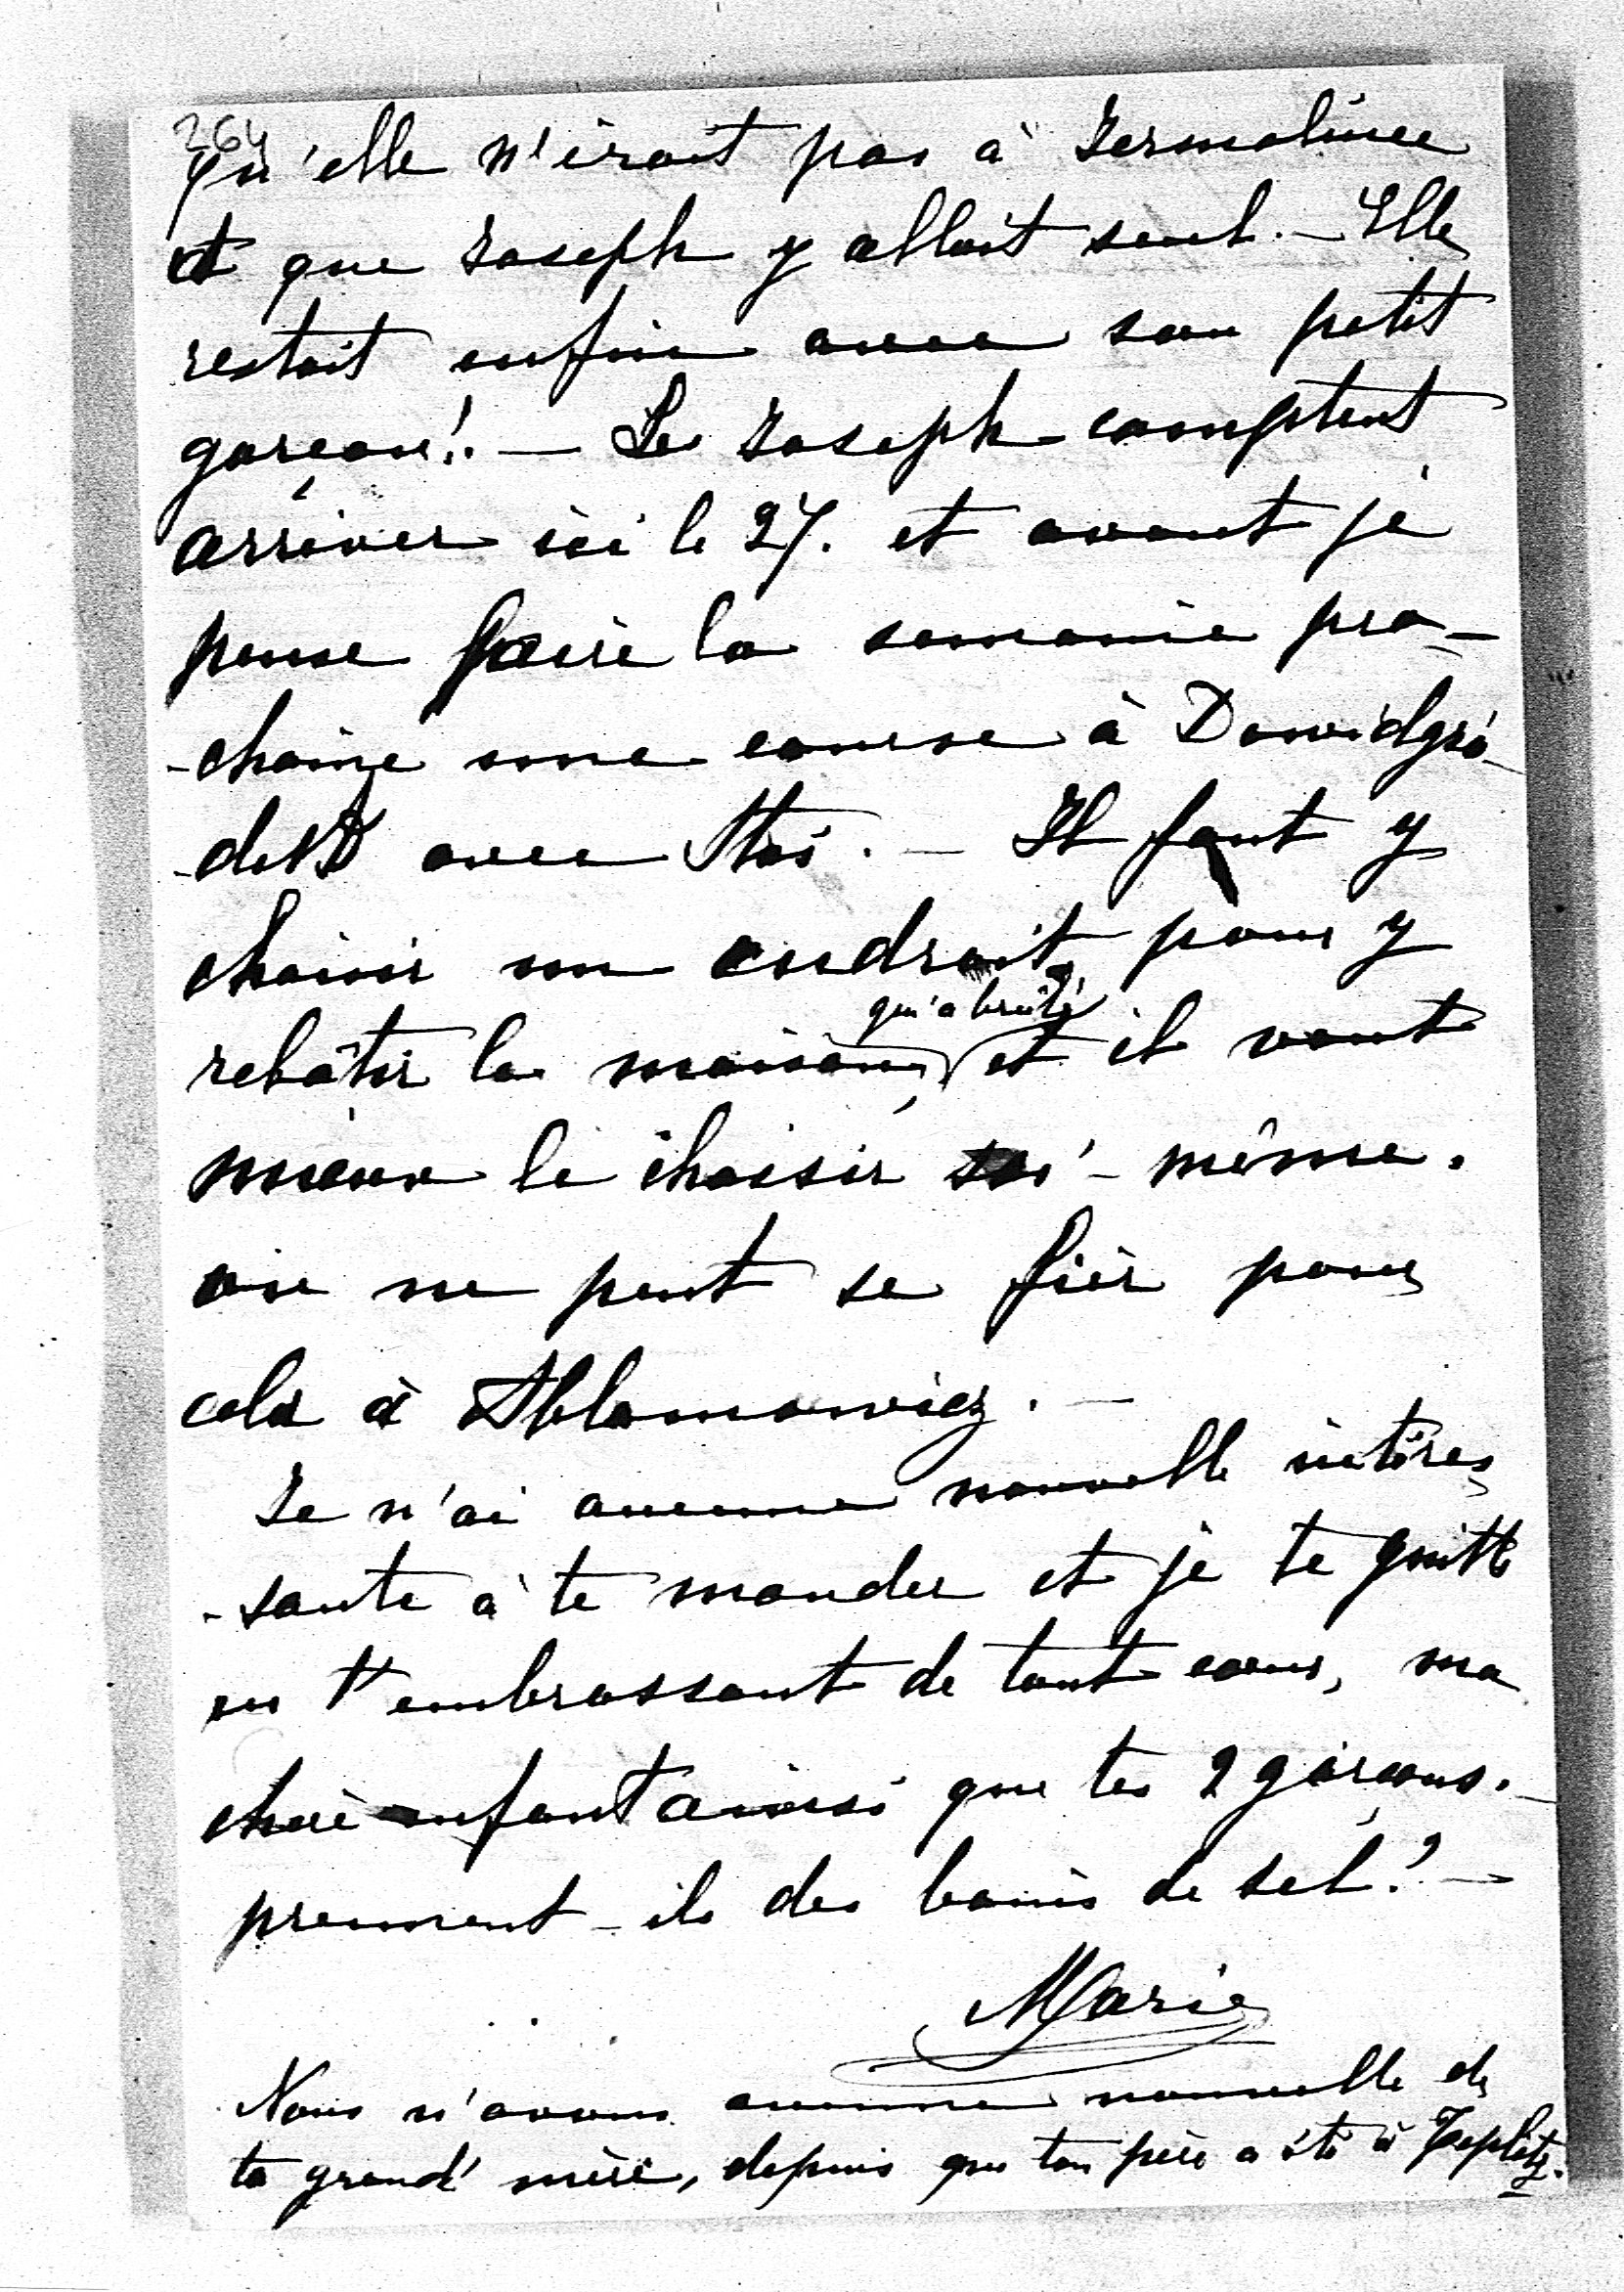 264
qu'elle n'irait pas à Jermolince
et que Joseph y allait seul. — Elle
restait enfin avec son petit
garçon! — Les Joseph comptent
arriver ici le 27. et avant je
pense faire la semaine pro-
-chaine une course à Dawidgró-
-dek avec Stas. — Il faut y
choisir un endroit pour y
rebâtir la maison, qui a brûlé et il vaut
mieux le choisir soi-même.
on ne peut se fier pour
cela à Ablamowicz. —
Je n'ai aucune nouvelle intéres
-sante à te mander et je te quitte
en t'embrassant de tout cœur, ma
chère enfant ainsi que tes 2 garçons. —
prennent-ils des bains de sel? —
Marie
Nous n'avons aucune nouvelle de
ta grand'mère, depuis que ton père a été à Teplitz.